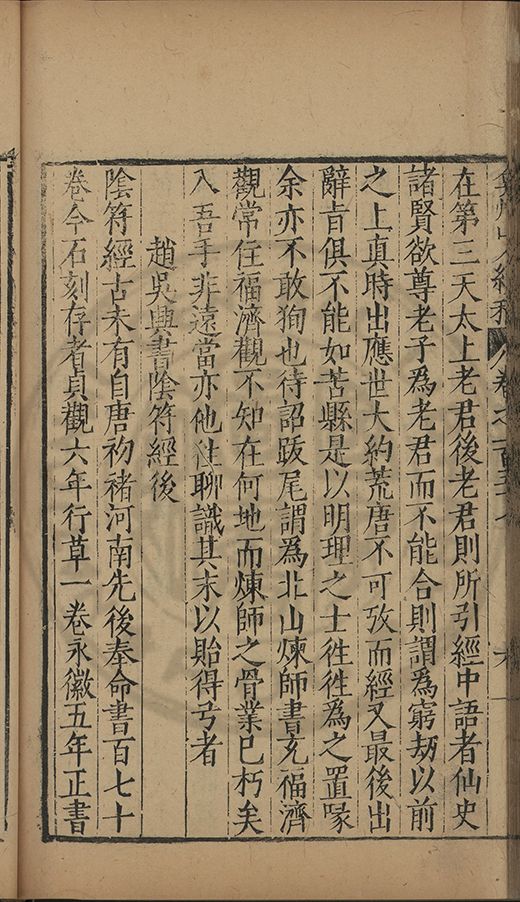 在第三天太上老君後老君則所引經中語者仙史
諸賢欲尊老子為老君而不能合則謂為窮劫以前
之上真時出應世大約荒唐不可攷而經又最後出
辭旨俱不能如苦縣是以明理之士徃徃為之置喙
余亦不敢狥也待詔跋尾謂為北山煉師書充福濟
觀常住福濟觀不知在何地而煉師之骨業已朽矣
入吾手非遠當亦他徃聊識其末以貽得弓者
趙吳興書陰符經後
陰符經古未有自唐初褚河南先後奉命書百七十
卷今石刻存者貞觀六年行草一卷永徽五年正書